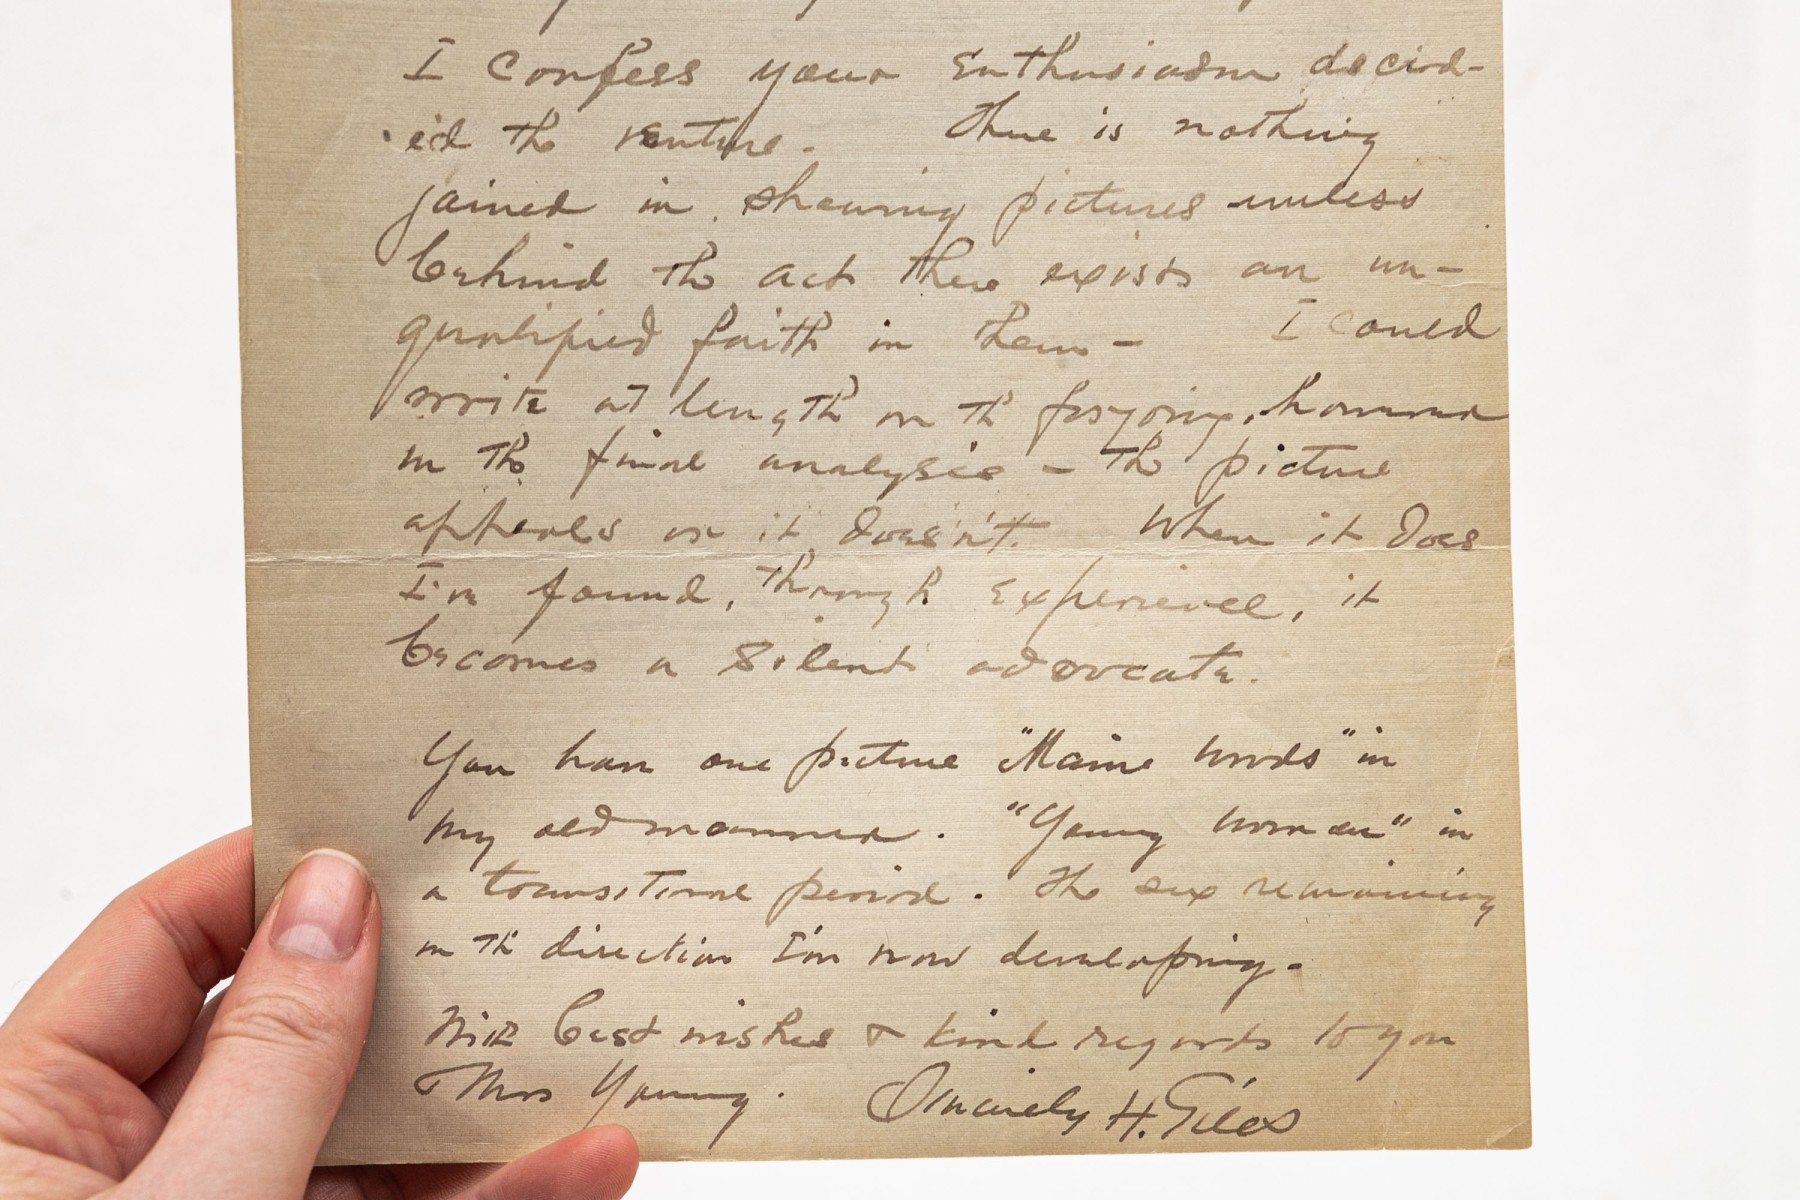 I confess your enthusiasm decid-
ed the venture. There is nothing
gained in showing pictures unless
behind the act there exists an un-
qualified faith in them - I could
write at length on the foregoing, however
in the final analysis - the picture
appeals or it doesn't. When it does
I'm found, through experience, it
becomes a silent advocate.
You have one picture "Maine Woods" in
my old manner. "Young Woman" in
a transitional period. The six remaining
in the direction I'm now developing.
With best wishes & kind regards to you
& Mrs Young. Sincerely H. Giles